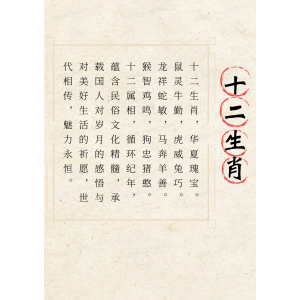 十二生肖
十二生肖，华夏瑰宝。
鼠灵牛勤，虎威兔巧。
龙祥蛇敏，马奔羊善。
猴智鸡鸣，狗忠猪憨。
十二属相，循环纪年，
蕴含民俗文化精髓，承
载国人对岁月的感悟与
对美好生活的祈愿，世
代相传，魅力永恒。